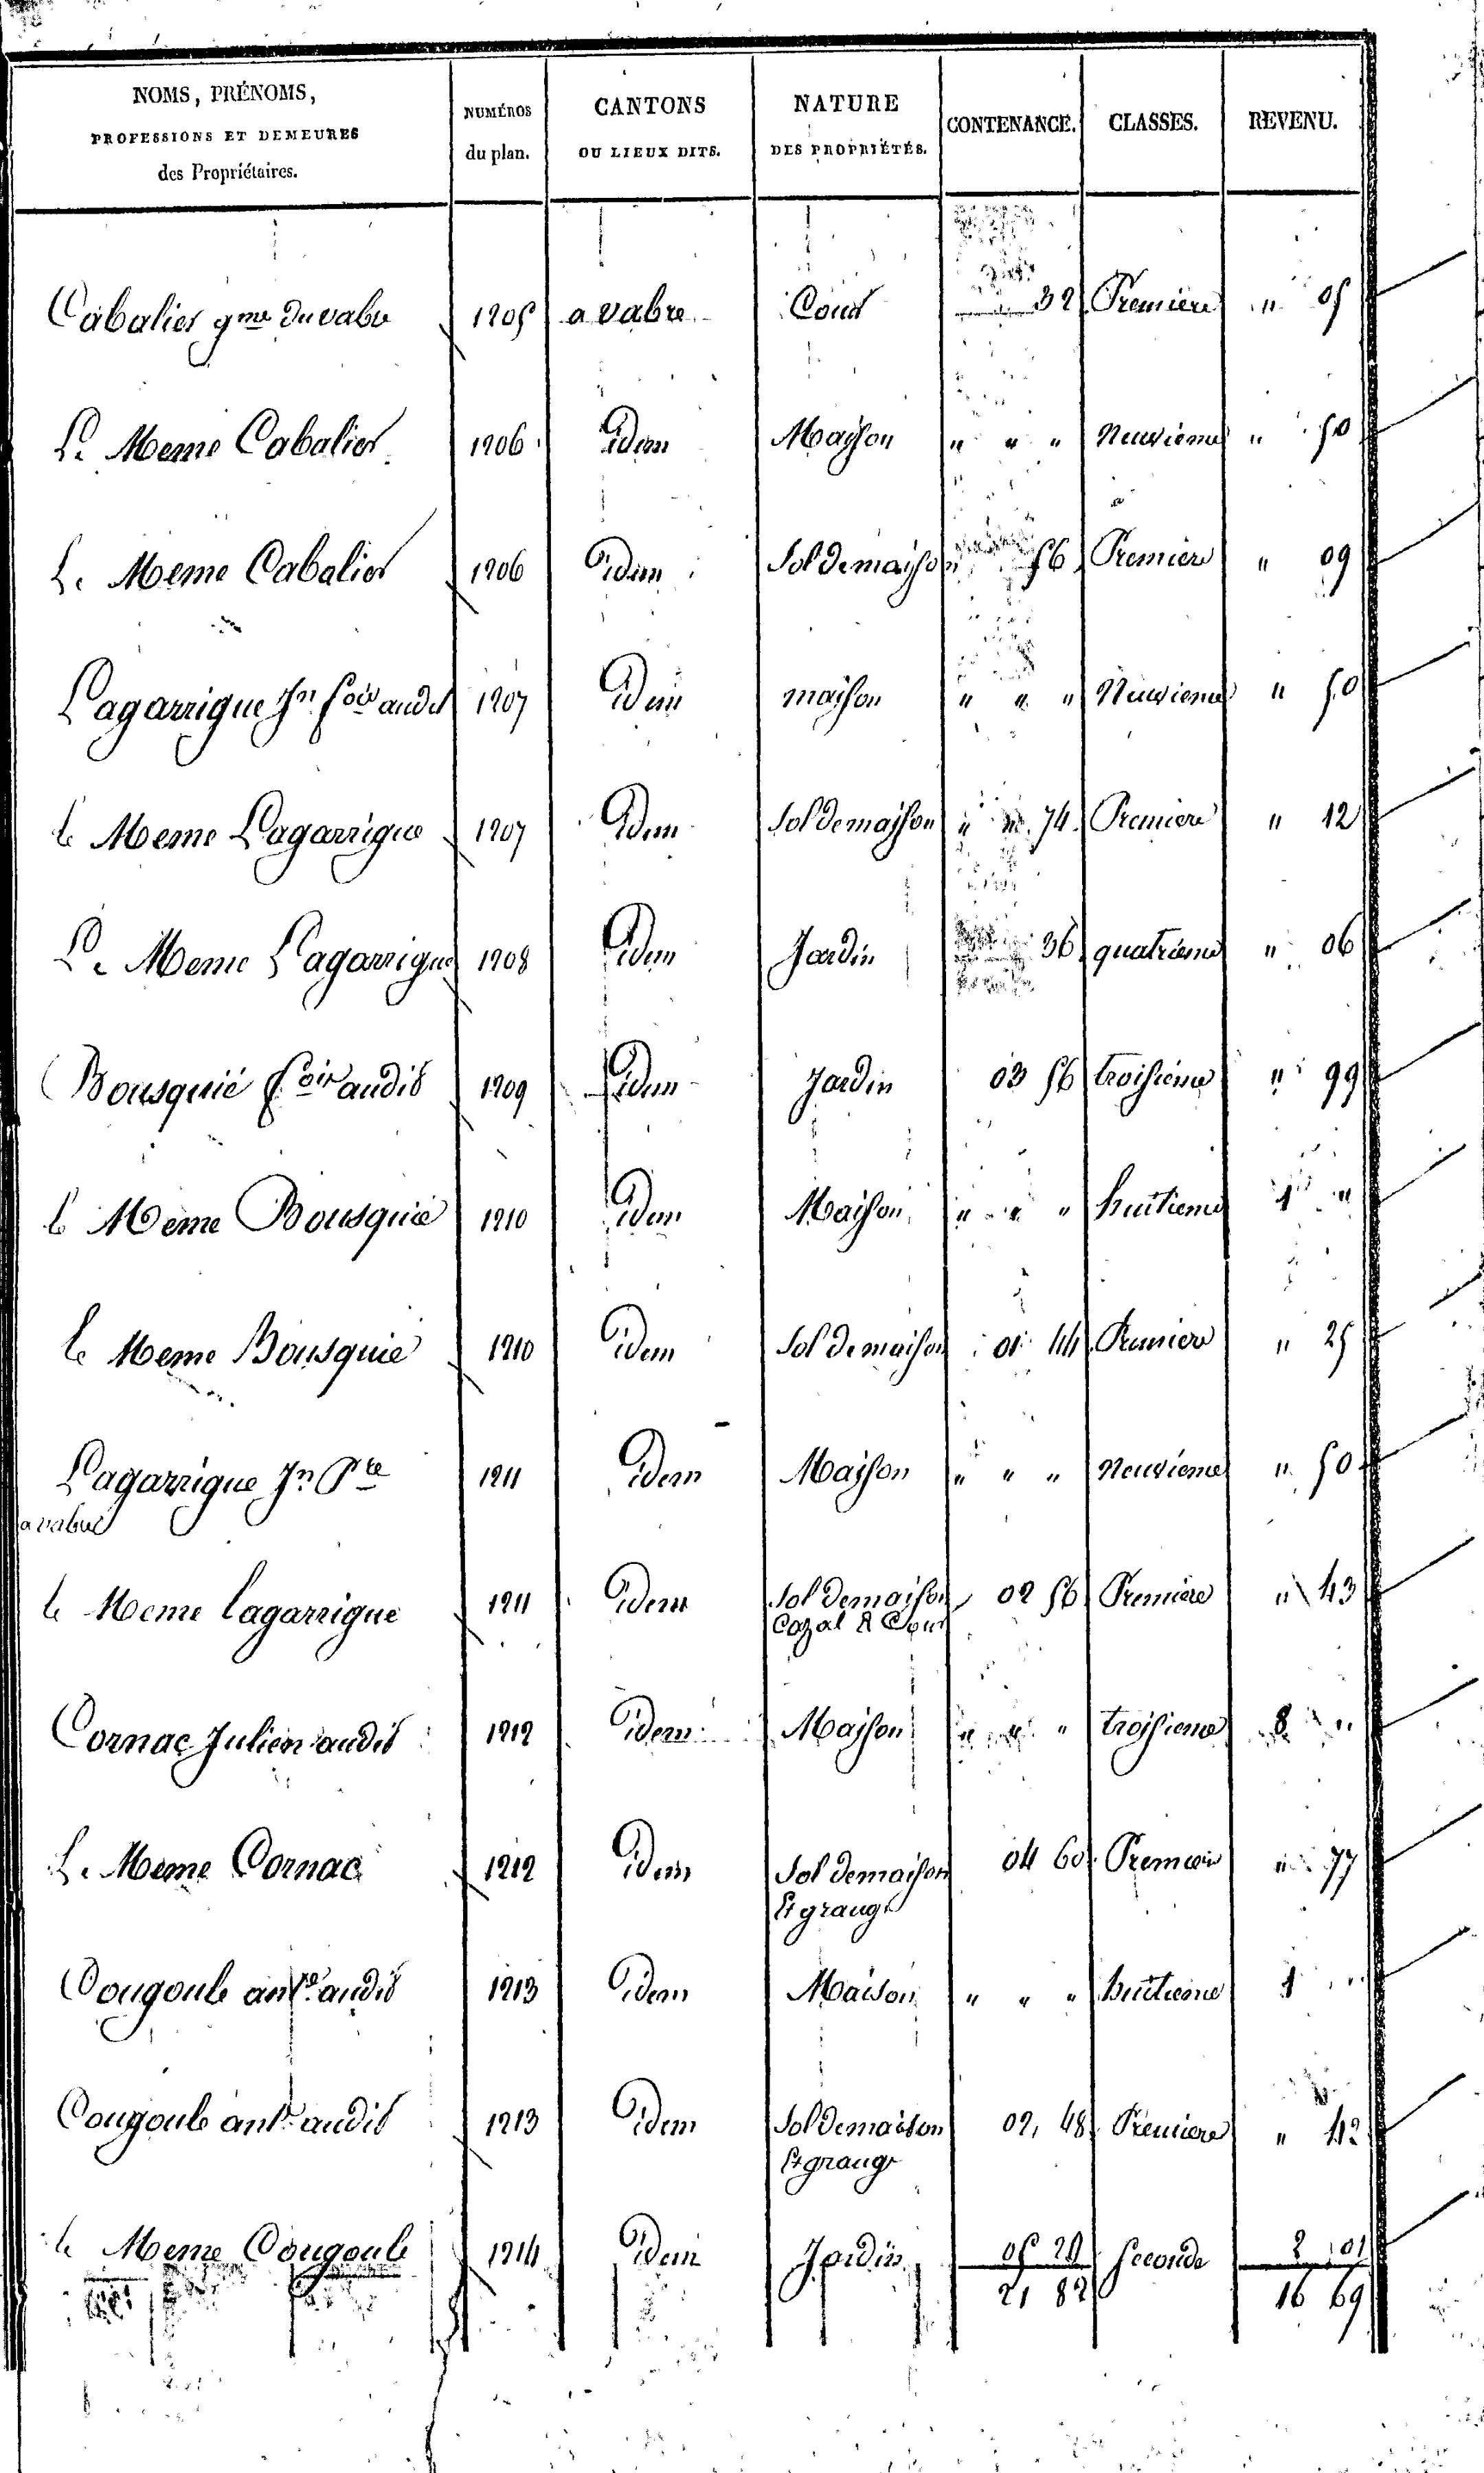 NOMS, PRÉNOMS, PROFESSIONS ET DEMEURES des Propriétaires. NUMÉROS du plan. CANTONS OU LIEUX DITS. NATURE DES PROPRIÉTÉS. CONTENANCE. CLASSES. REVENU.
Cabalier gme du vabre 1205 a vabre Cour 32 Premiere " 05
Le Meme Cabalier 1206 idem Maison " " " Neuvieme " 50
Le Meme Cabalier 1206 idem Sol de maison 56 Premiere " 09
Lagarrigue Jn fois audit 1207 idem maison " " " Neuvieme " 50
le Meme Lagarrigue 1207 idem Sol de maison " " 74 Premiere " 12
Le Meme Lagarrigue 1208 idem Jardin 36 quatrieme " 06
Bousquié fois audit 1209 idem Jardin 03 56 troisieme " 99
le Meme Bousquié 1210 idem Maison " " " huitieme 1 "
le Meme Bousquié 1210 idem Sol de maison 01 44 Premiere " 25
Lagarrigue Jn Pre 1211 idem Maison " " " Neuvieme " 50
a vabre
le Meme Lagarrigue 1211 idem Sol de maison 02 56 Premiere " 43
Cazal & Cour
Cornac Julien audit 1212 idem Maison " " " troisieme 8 "
Le Meme Cornac 1212 idem Sol de maison 04 60 Premiere " 77
Et grange
Cougoule antne audit 1213 idem Maison " " " huitieme 1 "
Cougoule antne audit 1213 idem Sol de maison 02, 48 Premiere " 42
Et grange
le Meme Cougoule 1214 idem Jardin 05 20 Seconde 2 01
21 82 16 69